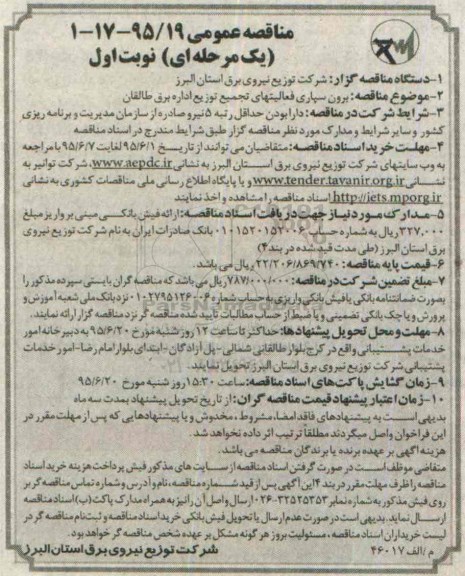 مناقصه عمومی ۹۵/۱۹-۱۷-۱
(یک مرحله ای) نوبت اول
۱-دستگاه مناقصه گزار: شرکت توزیع نیروی برق استان البرز
۲-موضوع مناقصه: برون سپاری فعالیتهای تجمیع توزیع اداره برق طالقان
۳-شرایط شرکت در مناقصه: دارا بودن حداقل رتبه ۵ نیرو صادره از سازمان مدیریت و برنامه ریزی
کشور و سایر شرایط و مدارک مورد نظر مناقصه گزار طبق شرایط مندرج در اسناد مناقصه
۴-مهلت خرید اسناد مناقصه: متقاضیان می توانند از تاریخ ۹۵/۶/۱ لغایت ۹۵/۶/۷ با مراجعه
به وب سایتهای شرکت توزیع نیروی برق استان البرز به نشانی www.aepdc.ir، شرکت توانیر به
نشانی www.tender.tavanir.org.ir و یا پایگاه اطلاع رسانی ملی مناقصات کشوری به نشانی
http://iets.mporg.ir اسناد مناقصه را مشاهده و اخذ نمایند
۵-مدارک مورد نیاز جهت دریافت اسناد مناقصه: ارائه فیش بانکی مبنی بر واریز مبلغ
۳۲۷,۰۰۰ ریال به شماره حساب ۰۱۰۱۵۲۰۱۵۲۰۰۶ بانک صادرات ایران به نام شرکت توزیع نیروی
برق استان البرز (طی مدت قید شده در بند ۴)
۶-قیمت پایه مناقصه: ۲۲/۲۰۶/۸۶۹/۷۴۰ ریال می باشد.
۷-مبلغ تضمین شرکت در مناقصه: ۷۸۷/۰۰۰/۰۰۰ ریال می باشد که مناقصه گران بایستی سپرده مذکور را
بصورت ضمانتنامه بانکی یا فیش بانکی واریزی به حساب شماره ۰۱۰۲۷۹۵۱۲۶۰۰۶ نزد بانک ملی شعبه آموزش و
پرورش و یا چک بانکی تضمینی و یا ضبط از حساب مطالبات تایید شده مناقصه گر نزد مناقصه گزار ارائه نمایند.
۸-مهلت و محل تحویل پیشنهادها: حداکثر تا ساعت ۱۲ روز شنبه مورخ ۹۵/۶/۲۰ به دبیرخانه امور
خدمات پشتیبانی واقع در کرج بلوار طالقانی شمالی-پل آزادگان-ابتدای بلوار امام رضا-امور خدمات
پشتیبانی شرکت توزیع نیروی برق استان البرز تحویل نمایند.
۹-زمان گشایش پاکت های اسناد مناقصه: ساعت ۱۵:۳۰ روز شنبه مورخ ۹۵/۶/۲۰
۱۰-زمان اعتبار پیشنهاد قیمت مناقصه گران: از تاریخ تحویل پیشنهاد بمدت سه ماه
بدیهی است به پیشنهادهای فاقد امضا، مشروط، مخدوش و یا پیشنهادهایی که پس از مهلت مقرر در
این فراخوان واصل میگردند مطلقا ترتیب اثر داده نخواهد شد.
هزینه آگهی بر عهده برنده یا برندگان مناقصه می باشد.
متقاضی موظف است در صورت گرفتن اسناد مناقصه از سایت های مذکور فیش پرداخت هزینه خرید اسناد
مناقصه را ظرف مهلت مقرر در بند ۴ این آگهی پس از قید شماره مناقصه، نام و آدرس و شماره تماس مناقصه گر بر
روی فیش مذکور به شماره نمابر ۳۲۵۲۵۳۵۳-۰۲۶ ارسال و اصل آن را نیز به همراه مدارک پاکت (ب) اسناد مناقصه
ارسال نماید. بدیهی است در صورت عدم ارسال یا تحویل فیش بانکی خرید اسناد مناقصه و ثبت نام مناقصه گر در
لیست خریداران اسناد مناقصه، مسئولیت بروز هر گونه مشکل بر عهده شخص مناقصه گر خواهد بود.
م/الف ۴۶۰۱۷ شرکت توزیع نیروی برق استان البرز